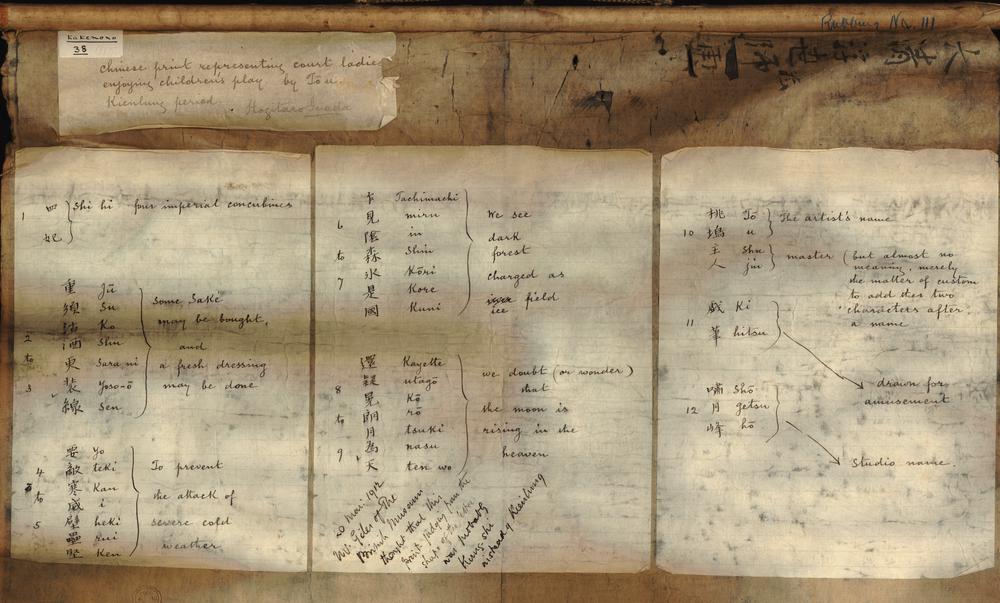 Rubbing No. 111
Kakemono
38
Chinese print representing court ladies
enjoying children's play by To u.
Kienlung period. Hogitaro Inada
1 四 妃 Shi hi four imperial concubines
重 Jū
須 Su
沽 Ko
2 酒 Shu
to 更 Sara ni
3 裝 Yoso-ō
線 Sen
some Sake
may be bought,
and
a fresh dressing
may be done
要 Yo
4 敵 teki
寒 Kan
to 威 i
5 壁 heki
壘 rui
堅 Ken
To prevent
the attack of
severe cold
weather
乍 Tachimachi
見 miru
6 陰 in
to 森 Shin
氷 Kōri
7 是 Kore
國 Kuni
We see
dark
forest
charged as
field
ice
還 Kayette
疑 utagō
8 晃 Kō
to 朗 rō
月 tsuki
爲 nasu
9 天 ten wo
we doubt (or wonder)
that
the moon is
rising in the
heaven
20 mars 1912
Mr Giles of the
British Museum
thought that this
print, judging from the
shape of the
was probably
Kang-shi
instead of Kienlung
10 桃 Tō
塢 u
The artist's name
主 Shu
人 jin
master (but almost no
meaning, merely
the matter of custom
to add thes two
characters after
a name
11 戲 Ki
筆 hitsu
drawn for
amusement
嘯 Shō
12 月 getsu
峰 hō
Studio name.